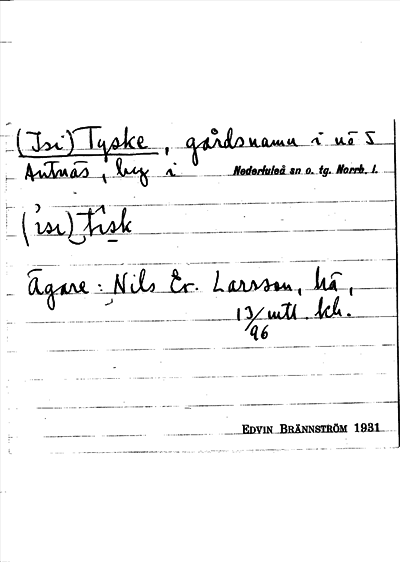 (Isi) Tyske, gårdsnamn i nö 5
Antnäs, by i Nederluleå sn o. tg. Norrb. l.
(isi) tisk
Ägare: Nils Er. Larsson, hä,
13/96 mtl kh.
EDVIN BRÄNNSTRÖM 1931